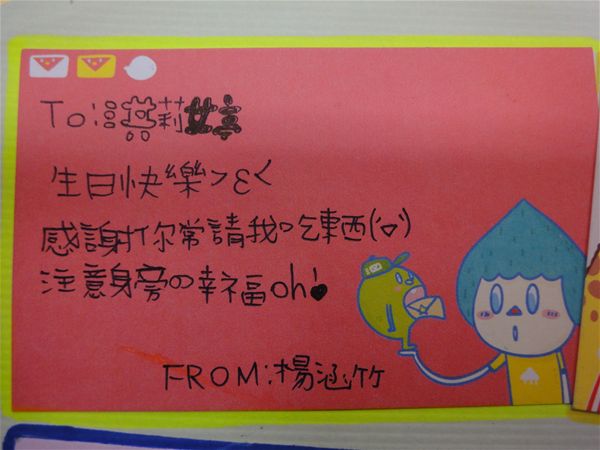 To:洪莉婷
生日快樂>ε<
感謝你常請我吃東西('o')
注意身旁の幸福oh!
FROM:楊涵竹